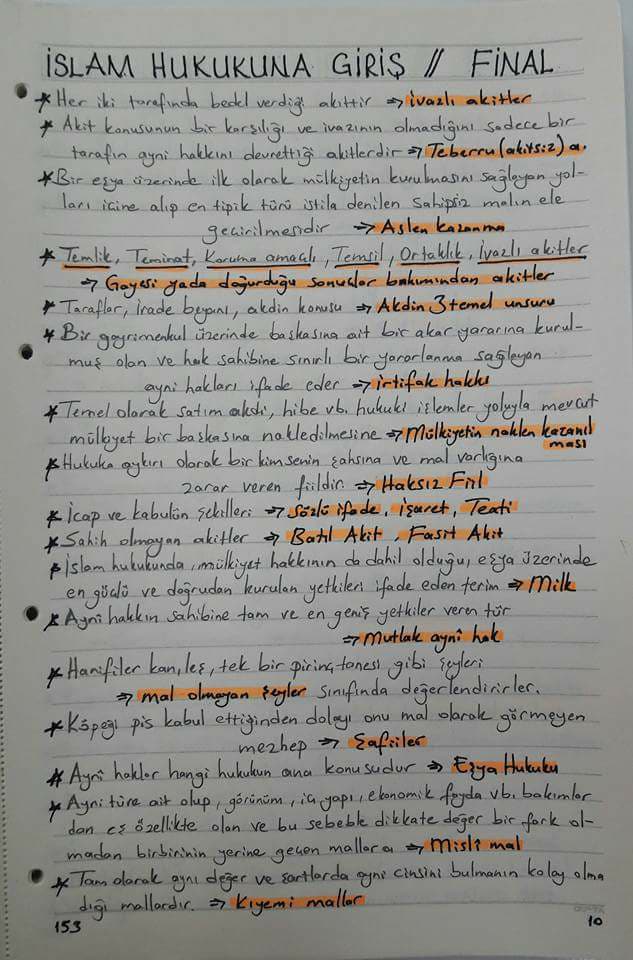 İSLAM HUKUKUNA GİRİŞ // FİNAL
* Her iki tarafında bedel verdiği akittir => İvazlı akitler
* Akit konusunun bir karşılığı ve ivazının olmadığını sadece bir
tarafın ayni hakkını devrettiği akitlerdir => Teberru (akitsiz) a.
* Bir eşya üzerinde ilk olarak mülkiyetin kurulmasını sağlayan yol-
ları içine alıp en tipik türü istila denilen sahipsiz malın ele
geçirilmesidir => Aslen kazanma
* Temlik, Teminat, Koruma amaçlı, Temsil, Ortaklık, İvazlı akitler
=> Gayesi yada doğurduğu sonuçlar bakımından akitler
* Taraflar, irade beyanı, akdin konusu => Akdin 3 temel unsuru
* Bir gayrimenkul üzerinde başkasına ait bir akar yararına kurul-
muş olan ve hak sahibine sınırlı bir yararlanma sağlayan
ayni hakları ifade eder => irtifak hakkı
* Temel olarak satım akdi, hibe vb. hukuki işlemler yoluyla mevcut
mülkiyet bir başkasına nakledilmesine => Mülkiyetin naklen kazanıl
ması
* Hukuka aykırı olarak bir kimsenin şahsına ve mal varlığına
zarar veren fiildir. => Haksız Fiil
* İcap ve kabulün şekilleri => Sözlü ifade, işaret, Teati
* Sahih olmayan akitler => Batıl Akit, Fasit Akit
* İslam hukukunda, mülkiyet hakkının da dahil olduğu, eşya üzerinde
en güçlü ve doğrudan kurulan yetkileri ifade eden terim => Milk
* Aynî hakkın sahibine tam ve en geniş yetkiler veren tür
=> Mutlak aynî hak
* Hanifiler kan, leş, tek bir pirinç tanesi gibi şeyleri
=> mal olmayan şeyler sınıfında değerlendirirler.
* Köpeği pis kabul ettiğinden dolayı onu mal olarak görmeyen
mezhep => Şafiiler
* Aynî haklar hangi hukukun ana konusudur => Eşya Hukuku
* Ayni türe ait olup, görünüm, iç yapı, ekonomik fayda vb. bakımlar
dan eş özellikte olan ve bu sebeble dikkate değer bir fark ol-
madan birbirinin yerine geçen mallara => Mislî mal
* Tam olarak aynı değer ve şartlarda ayni cinsini bulmanın kolay olma
dığı mallardır. => Kıyemi mallar
153
10